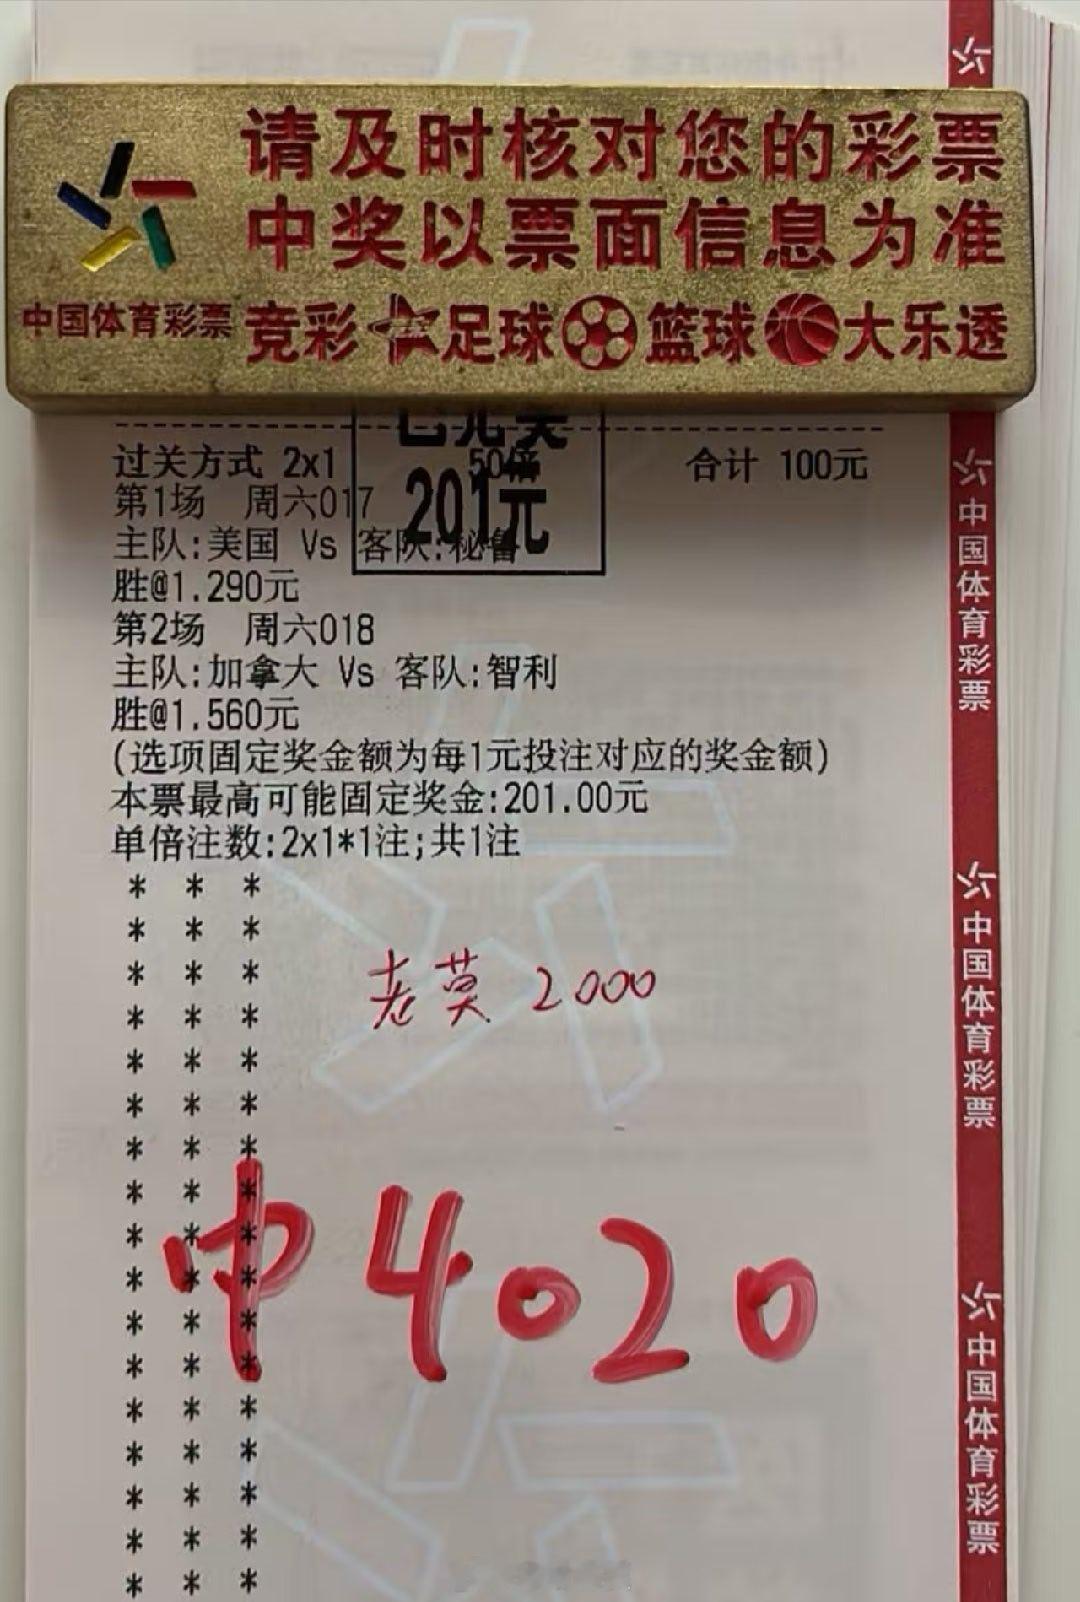 请及时核对您的彩票
中奖以票面信息为准
中国体育彩票 竞彩 足球 篮球 大乐透
已兑奖
201元
过关方式 2x1 50倍 合计 100元
第1场 周六017
主队:美国 Vs 客队:秘鲁
胜@1.290元
第2场 周六018
主队:加拿大 Vs 客队:智利
胜@1.560元
(选项固定奖金额为每1元投注对应的奖金额)
本票最高可能固定奖金:201.00元
单倍注数:2x1*1注;共1注
老莫 2000
中4020
中国体育彩票
中国体育彩票
中国体育彩票